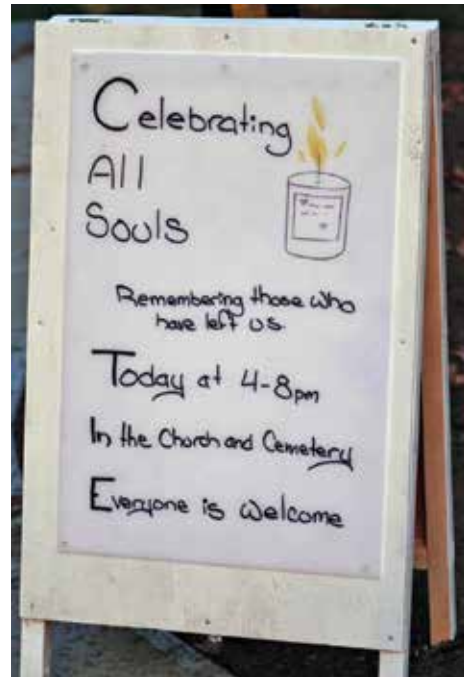 Celebrating
All
Souls
Remembering those who
have left us
Today at 4-8pm
In the Church and Cemetery
Everyone is welcome